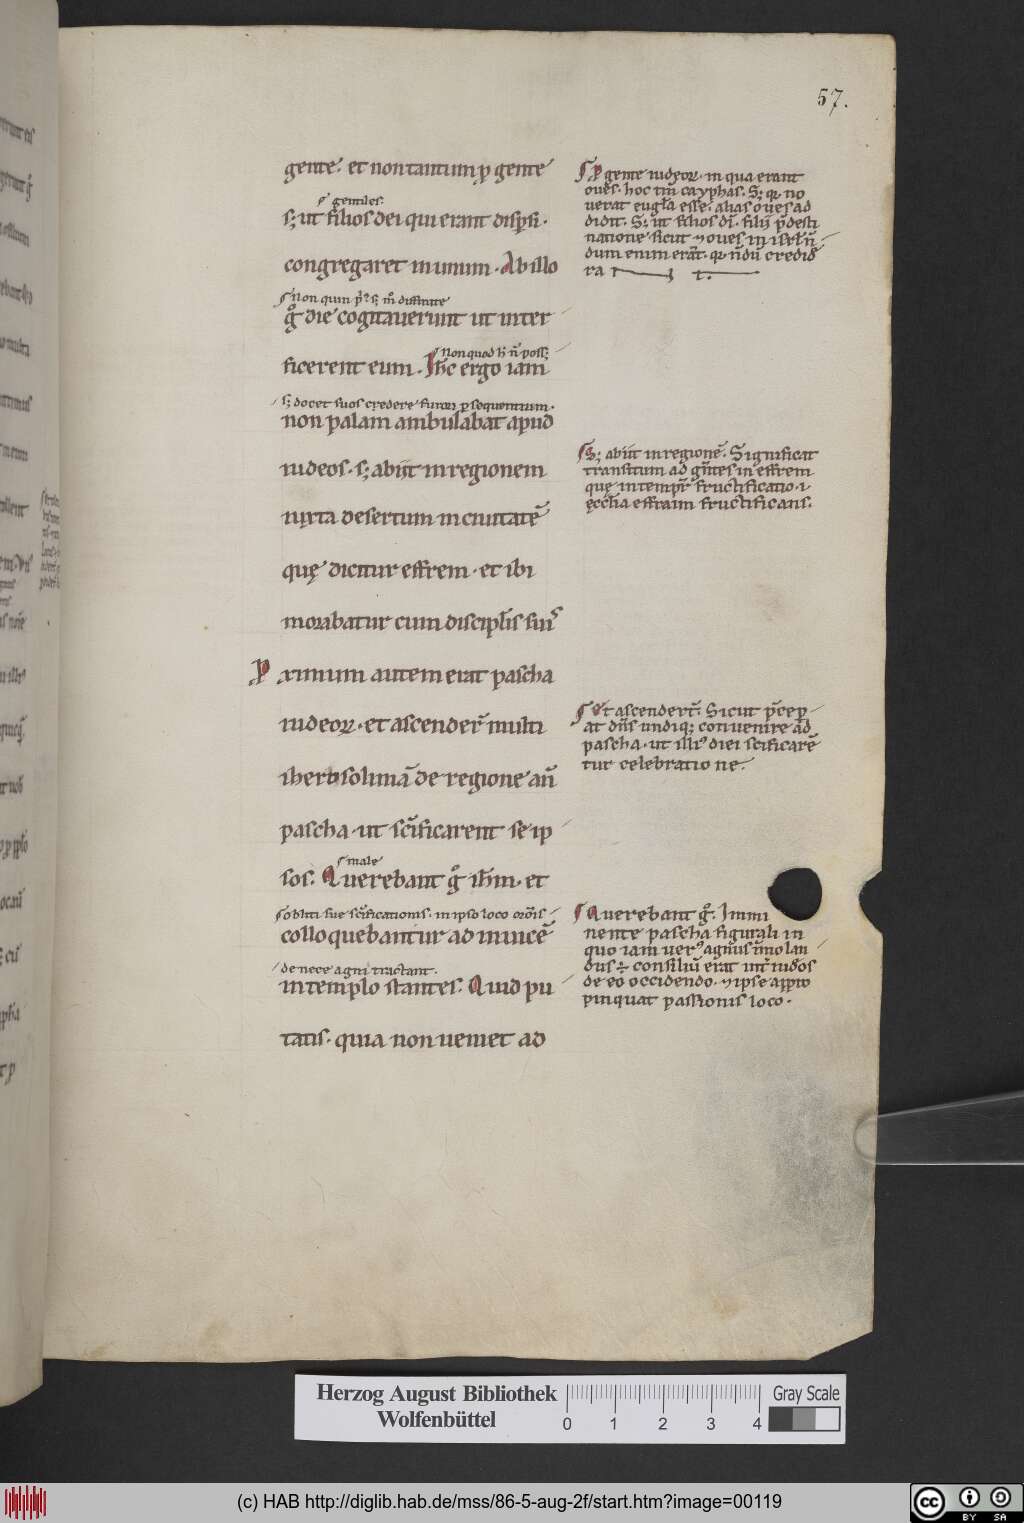 57.
gente. et non tantum ꝓ gente
gentiles.
s; ut filios dei qui erant disꝑsi.
congregaret in unum. Ab illo
Non quin pͥ? s; mͦ diffinite
gͦ die cogitauerunt ut inter
Non quod h̄ n̄ poss;
ficerent eum. Ih̄c ergo iam
s; docet suos credere furoꝝ ꝑsequentium.
non palam ambulabat apud
iudeos. s; abiit in regionem
iuxta desertum in ciuitatē
quę dicitur effrem. et ibi
morabatur cum discipl̄is suis
Pximum autem erat pascha
iudeoꝝ. et ascender̄ multi
iherosolimā de regione an̄
pascha. ut sc̄ificarent se ip
male
sos. Querebant gͦ ih̄m. et
obliti sue sc̄ificationis. in ipso loco or̄onis
colloquebantur ad inuicē
de nece agni tractant.
in templo stantes. Quid pu
tatis. quia non ueniet ad
Ꝓ gente iudeoꝝ. in qua erant
oues. hoc tm̄ cayphas. S; qͥ no
uerat eugl̄a esse. alias oues ad
didit. S; ut filios dī. filii p̄desti
natione sicut ⁊ oues in isrl̄ n̄
dum enim erāt. qͥ n̄dū credid̄
ra t.
S; abiit in regionē. Significat
transitum ad gn̄tes in effrem
quę intempr̄ fructificatio. i.
ęccl̄ia effraim fructificans.
Et ascender̄t. Sicut p̄cep
at dn̄s undiq; conuenire ad
pascha. ut illiꝰ diei sc̄ificarē
tur celebratione.
Querebant gͦ. Immi
nente pascha figurali in
quo iam uerꝰ agnus īmolan
dus ÷ consiliū erat int̄ iudͦos
de eo occidendo. ⁊ ipse appro
pinquat passionis loco.
Herzog August Bibliothek
Wolfenbüttel
0 1 2 3 4
Gray Scale
(c) HAB http://diglib.hab.de/mss/86-5-aug-2f/start.htm?image=00119
cc BY SA